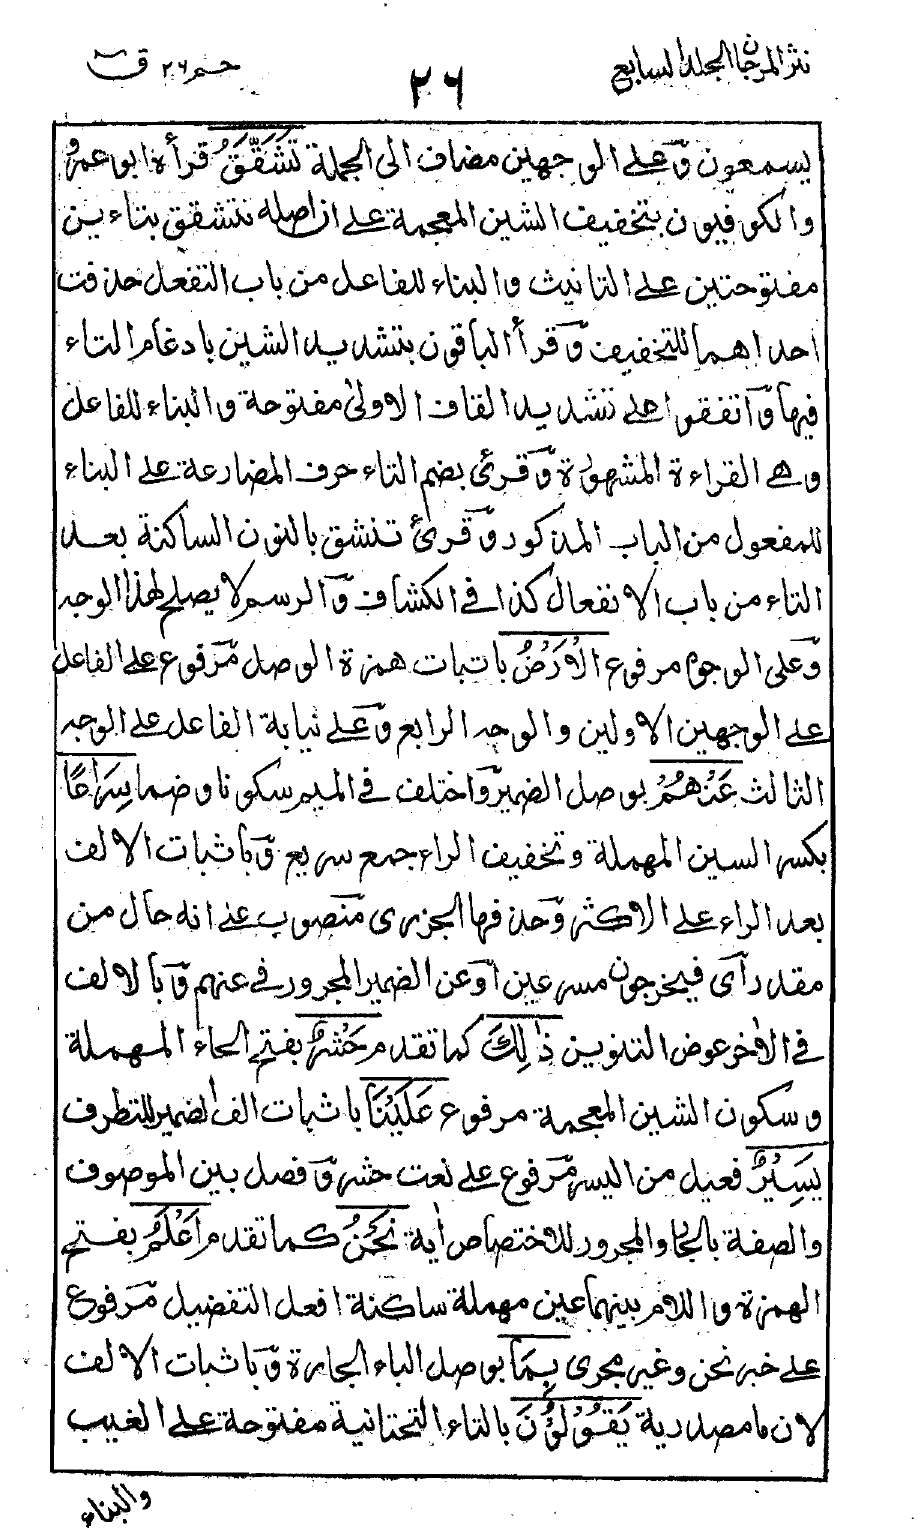 نثر المرجان المجلد السابع
٢٦
حم ٢٦ ق
يسمعون وعلى الوجهين مضاف الى الجملة تَشَقَّقُ قرأه ابو عمرو
والكوفيون بتخفيف الشين المعجمة على ان اصله تتشقق بتاءين
مفتوحتين على التانيث والبناء للفاعل من باب التفعل حذفت
احداهما للتخفيف وقرأ الباقون بتشديد الشين بادغام التاء
فيها واتفقوا على تشديد القاف الاولى مفتوحة والبناء للفاعل
وهى القراءة المشهورة وقرئ بضم التاء حرف المضارعة على البناء
للمفعول من الباب المذكور وقرئ تنشق بالنون الساكنة بعد
التاء من باب الانفعال كذا فى الكشاف والرسم لا يصلح لهذا الوجه
وعلى الوجوه مرفوع الْاَرْضُ باثبات همزة الوصل مرفوع على الفاعل
على الوجهين الاولين والوجه الرابع وعلى نيابة الفاعل على الوجه
الثالث عَنْهُمْ بوصل الضمير واختلف فى الميم سكونا وضما سِرَاعًا
بكسر السين المهملة وتخفيف الراء جمع سريع وباثبات الالف
بعد الراء على الاكثر وحذفها الجزرى منصوب على انه حال من
مقدر اى فيخرجون مسرعين او عن الضمير المجرور فى عنهم وبالالف
فى الاخر عوض التنوين ذٰلِكَ كما تقدم حَشْرٌ بفتح الحاء المهملة
وسكون الشين المعجمة مرفوع عَلَيْنَا باثبات الف الضمير للتطرف
يَسِيْرٌ فعيل من اليسر مرفوع على نعت حشر وفصل بين الموصوف
والصفة بالجار والمجرور للاختصاص اية نَحْنُ كما تقدم اَعْلَمُ بفتح
الهمزة واللام بينهما عين مهملة ساكنة افعل التفضيل مرفوع
على خبر نحن وغير مجرى بِمَا بوصل الباء الجارة وباثبات الالف
لان ما مصدرية يَقُوْلُوْنَ بالتاء التحتانية مفتوحة على الغيب
والبناء